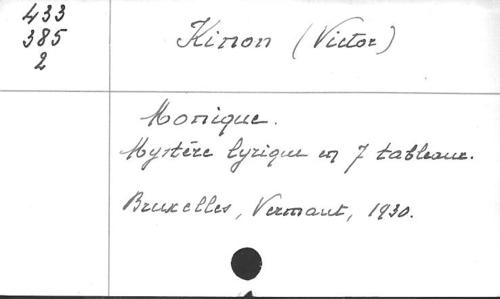 433
385
2
Kinon (Victor)
Monique.
Mystère lyrique en 7 tableaux.
Bruxelles, Vermaut, 1930.